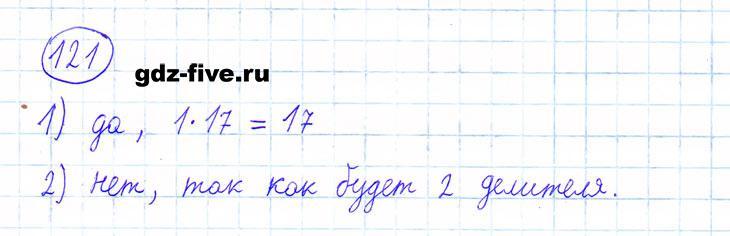 121
gdz-five.ru
1) да, 1·17 = 17
2) нет, так как будет 2 делителя.